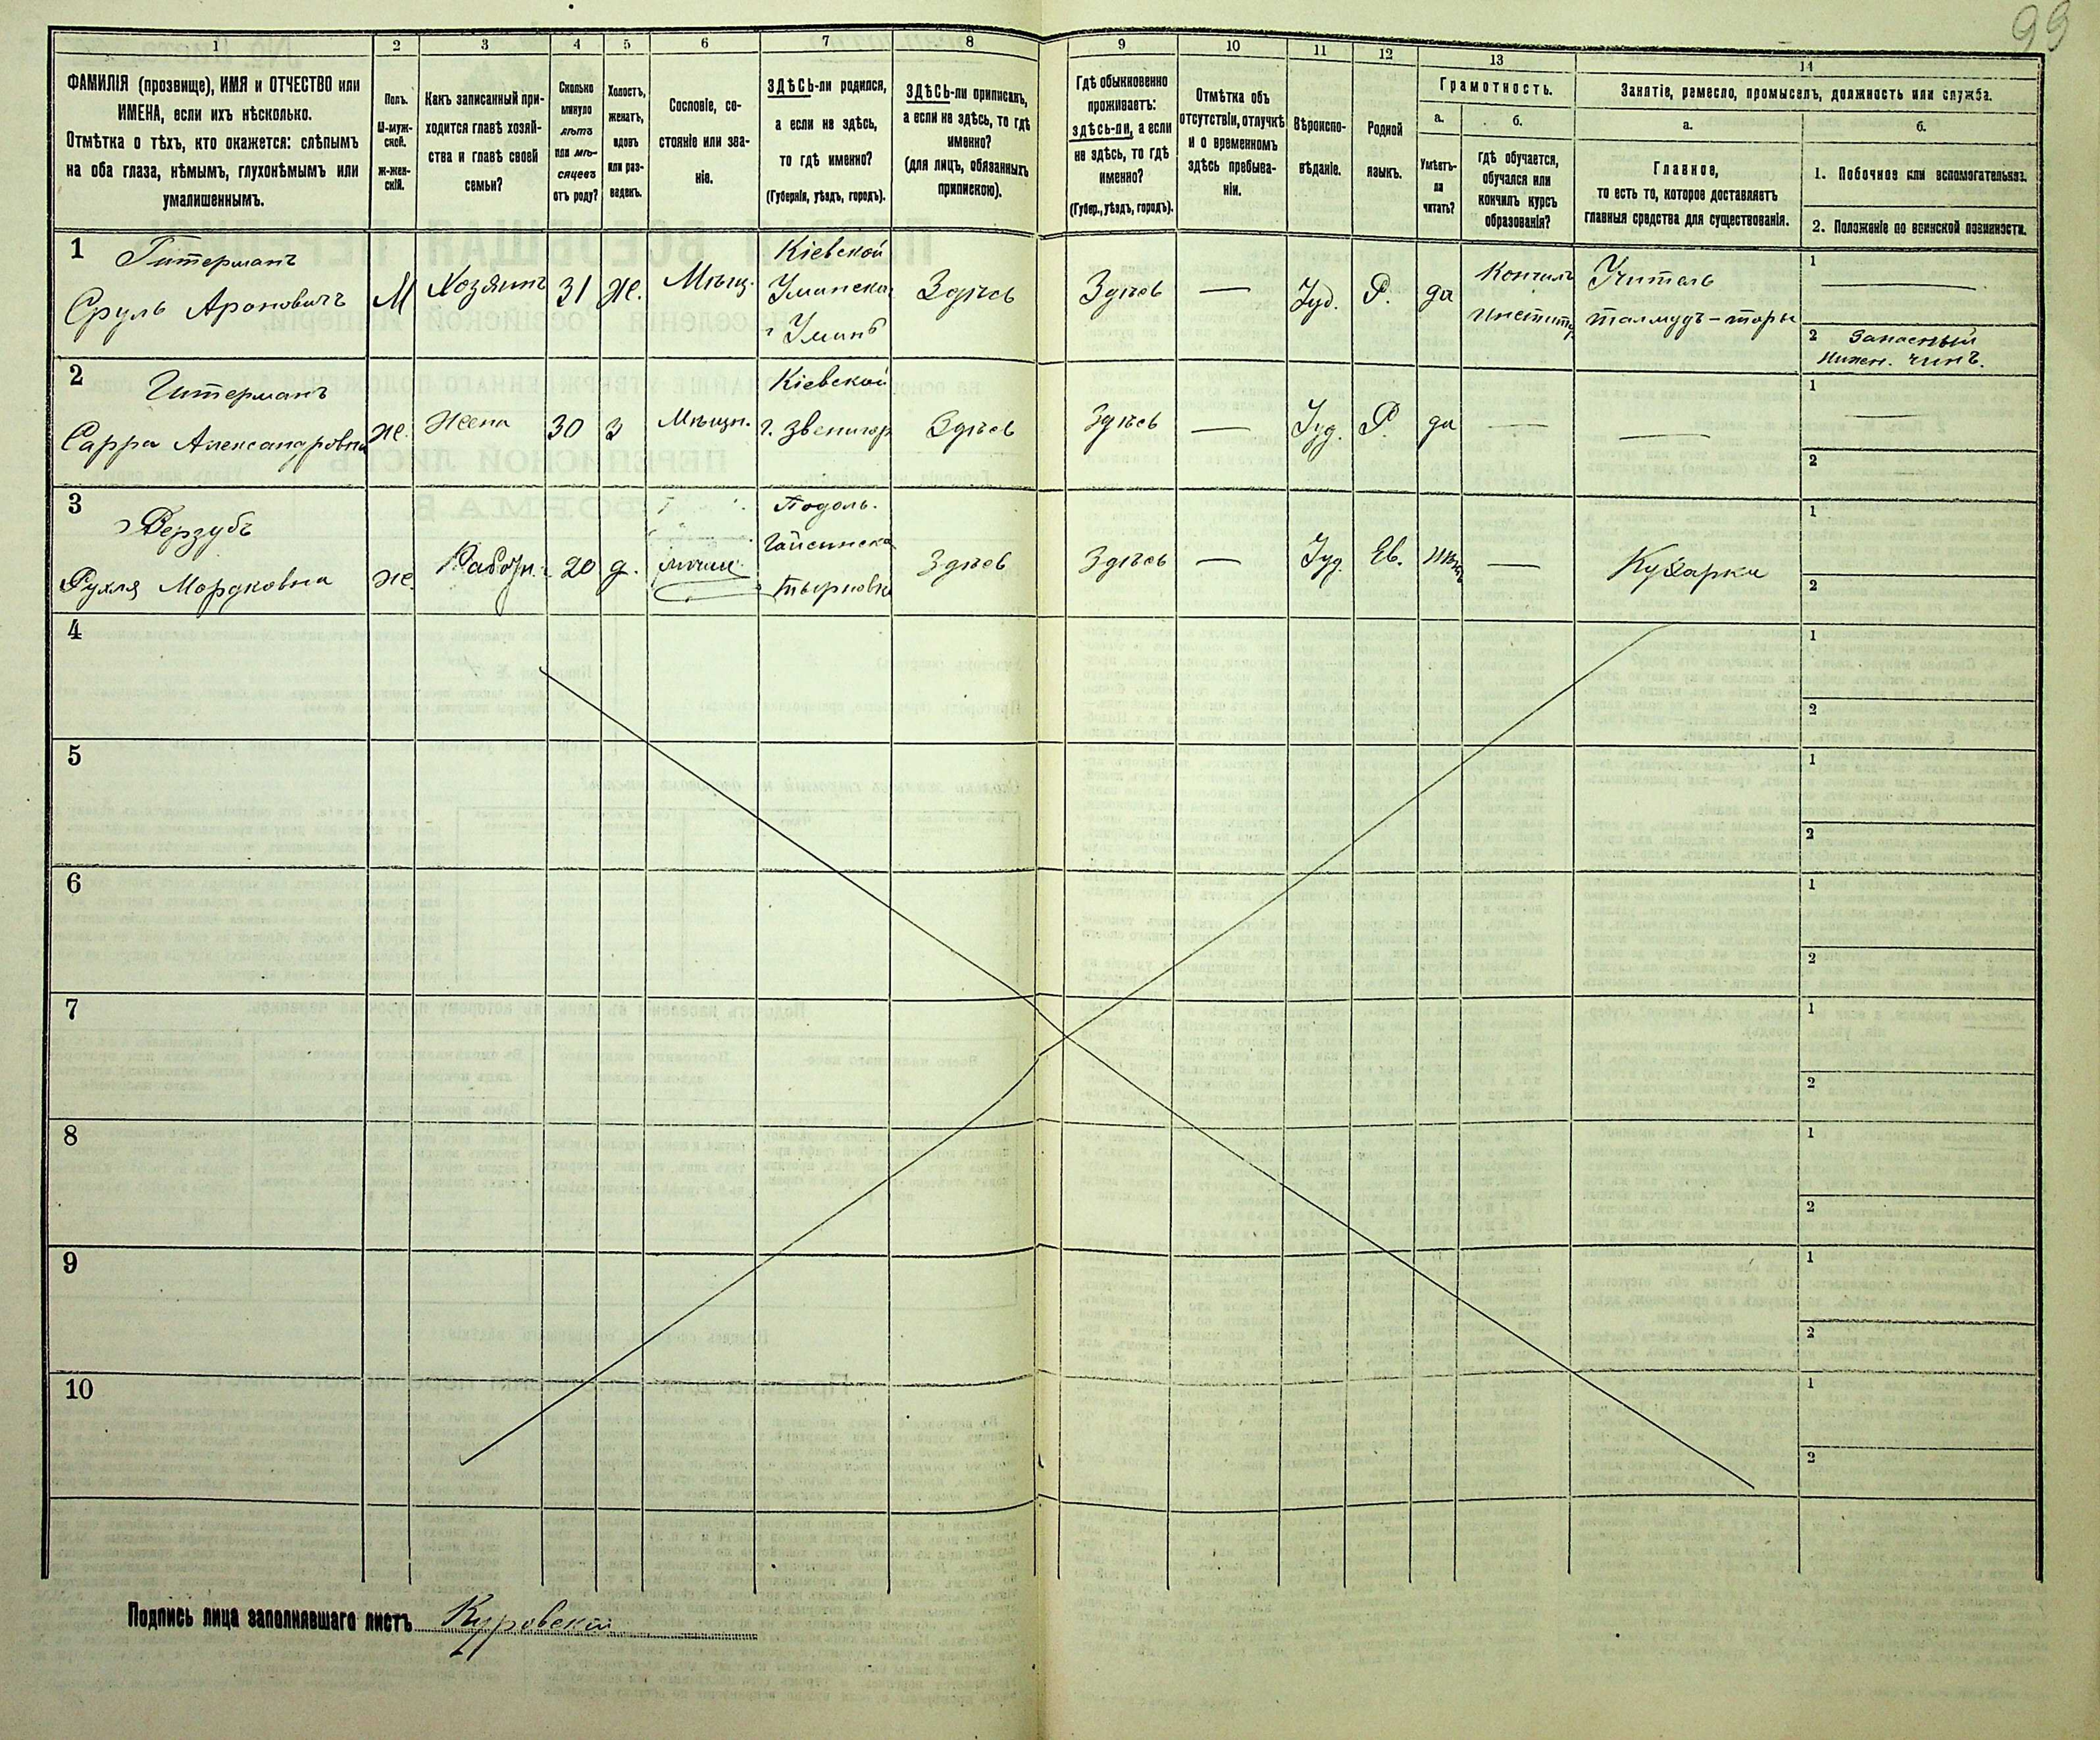 99
1
2
3
4
5
6
7
8
9
10
11
12
13
14
ФАМИЛІЯ (прозвище), ИМЯ и ОТЧЕСТВО или
ИМЕНА, если ихъ нѣсколько.
Отмѣтка о тѣхъ, кто окажется: слѣпымъ
на оба глаза, нѣмымъ, глухонѣмымъ или
умалишеннымъ.
Полъ.
М-муж-
ской.
Ж-жен-
скій.
Какъ записанный при-
ходится главѣ хозяй-
ства и главѣ своей
семьи?
Сколько
минуло
лѣтъ
или мѣ-
сяцевъ
отъ роду?
Холостъ,
женатъ,
вдовъ
или раз-
веденъ.
Сословіе, со-
стояніе или зва-
ніе.
ЗДѢСЬ-ли родился,
а если не здѣсь,
то гдѣ именно?
(Губернія, уѣздъ, городъ).
ЗДѢСЬ-ли приписанъ,
а если не здѣсь, то гдѣ
именно?
(для лицъ, обязанныхъ
припискою).
Гдѣ обыкновенно
проживаетъ:
здѣсь-ли, а если
не здѣсь, то гдѣ
именно?
(Губер., уѣздъ, городъ).
Отмѣтка объ
отсутствіи, отлучкѣ
и о временномъ
здѣсь пребыва-
ніи.
Вѣроиспо-
вѣданіе.
Родной
языкъ.
Грамотность.
а.
Умѣетъ-
ли
читать?
б.
гдѣ обучается,
обучался или
кончилъ курсъ
образованія?
Занятіе, ремесло, промыселъ, должность или служба.
а.
Главное,
то есть то, которое доставляетъ
главныя средства для существованія.
б.
1. Побочное или вспомогательное.
2. Положеніе по воинской повинности.
1
Гитерманъ
Сруль Ароновичъ
М
Хозяинъ
31
Ж.
Мѣщ.
Кіевской
Уманска
г Умань
Здѣсь
Здѣсь
—
Іуд.
Р.
да
Кончилъ
Институ
Учитель
талмудъ-торы
1
2 Запасный
Нижн. чинъ.
2
Гитерманъ
Сарра Александровна
Ж.
Жена
30
З
Мѣщн.
Кіевской
г. Звенигор
Здѣсь
Здѣсь
—
Іуд.
Р.
да
—
—
1 —
2
3
Верзубъ
Рухля Мордковна
Ж.
Работн.
20
д.
Подоль.
Гайсинска
Здѣсь
Здѣсь
—
Іуд.
Ев.
нѣтъ
—
Кухарка
1
2
4
1
2
5
1
2
6
1
2
7
1
2
8
1
2
9
1
2
10
1
2
Подпись лица заполнявшаго листъ Куровскій